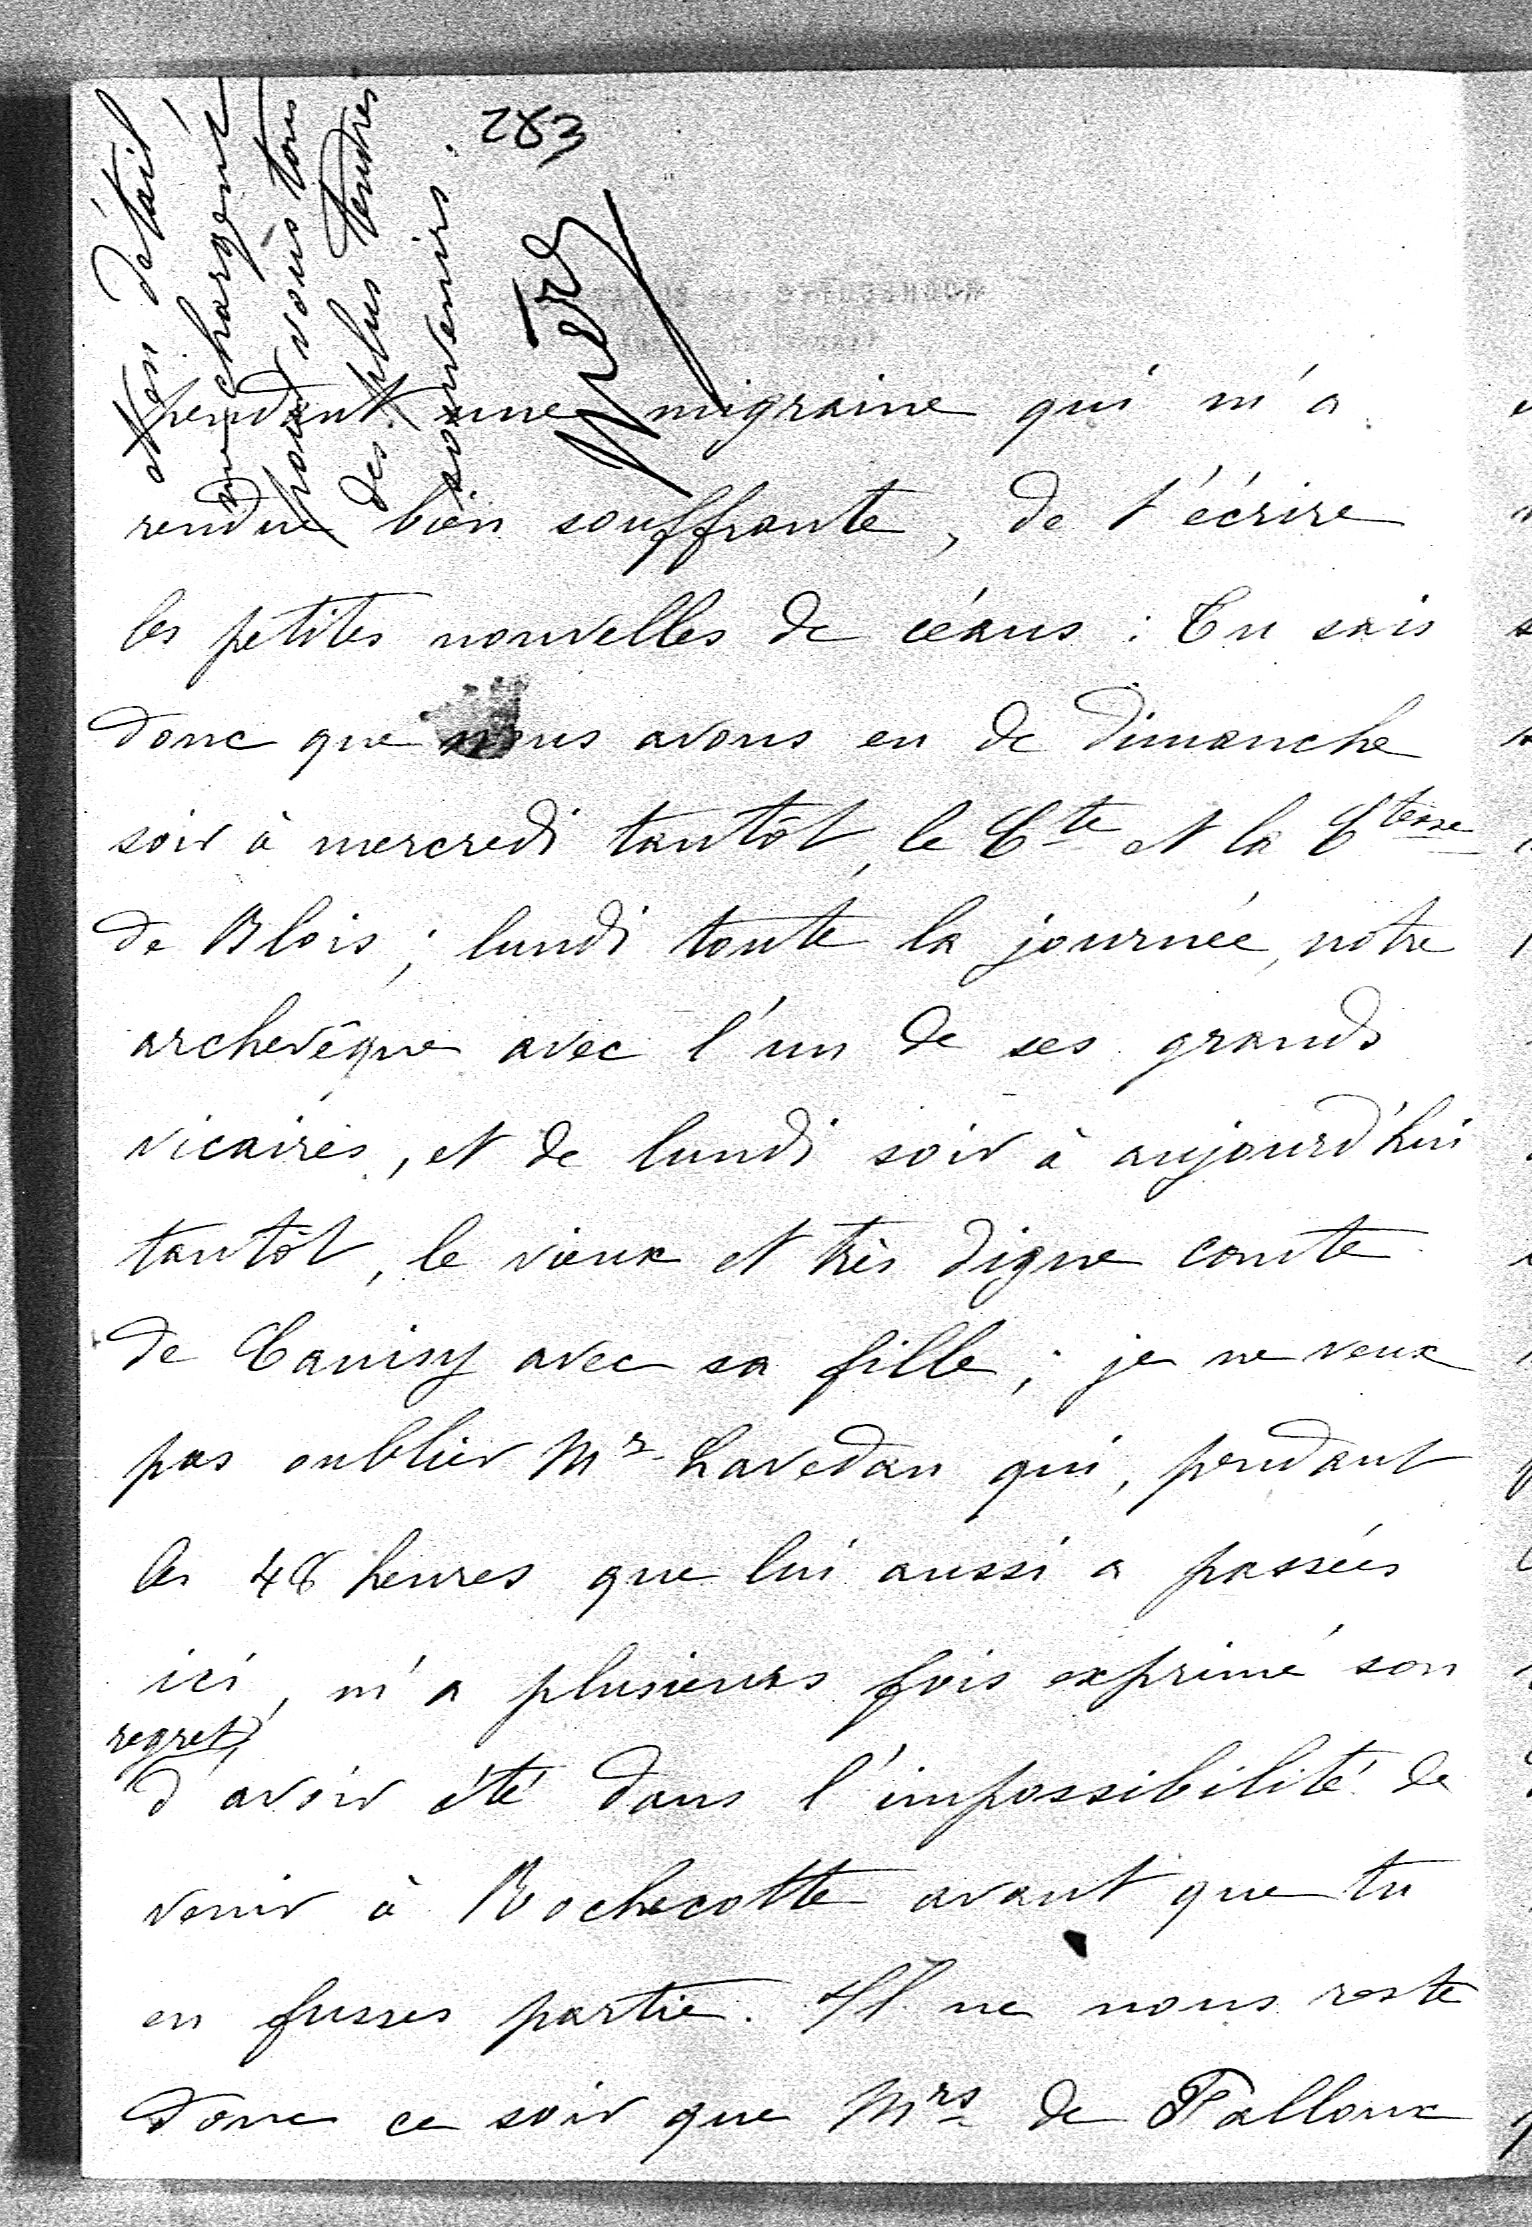 283
mon détail
me chargent
pour vous tous
des plus tendres
souvenirs.
pendant une migraine qui m'a
rendue bien souffrante, de t'écrire
les petites nouvelles de céans : Tu sais
donc que nous avons eu de Dimanche
soir à mercredi tantôt, le Cte et la Ctesse
de Blois ; lundi toute la journée, notre
archevêque avec l'un de ses grands
vicaires, et de lundi soir à aujourd'hui
tantôt, le vieux et très digne comte
de Canisy avec sa fille ; je ne veux
pas oublier Mr Lavedan qui, pendant
les 48 heures que lui aussi a passées
ici, m'a plusieurs fois exprimé son
regret,
d'avoir été dans l'impossibilité de
venir à Rochecotte avant que tu
en fusses partie. Il ne nous reste
donc ce soir que Mrs de Falloux